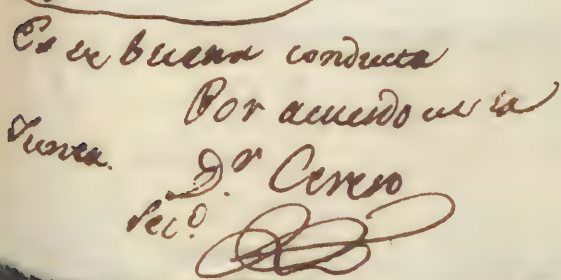 Es de buena conducta
Por acuerdo de la
Junta.
D.r Cerero
Sec.o